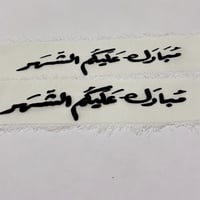 مُبَارَك عَليكُم الشَهَر
مُبَارَك عَليكُم الشَهَر